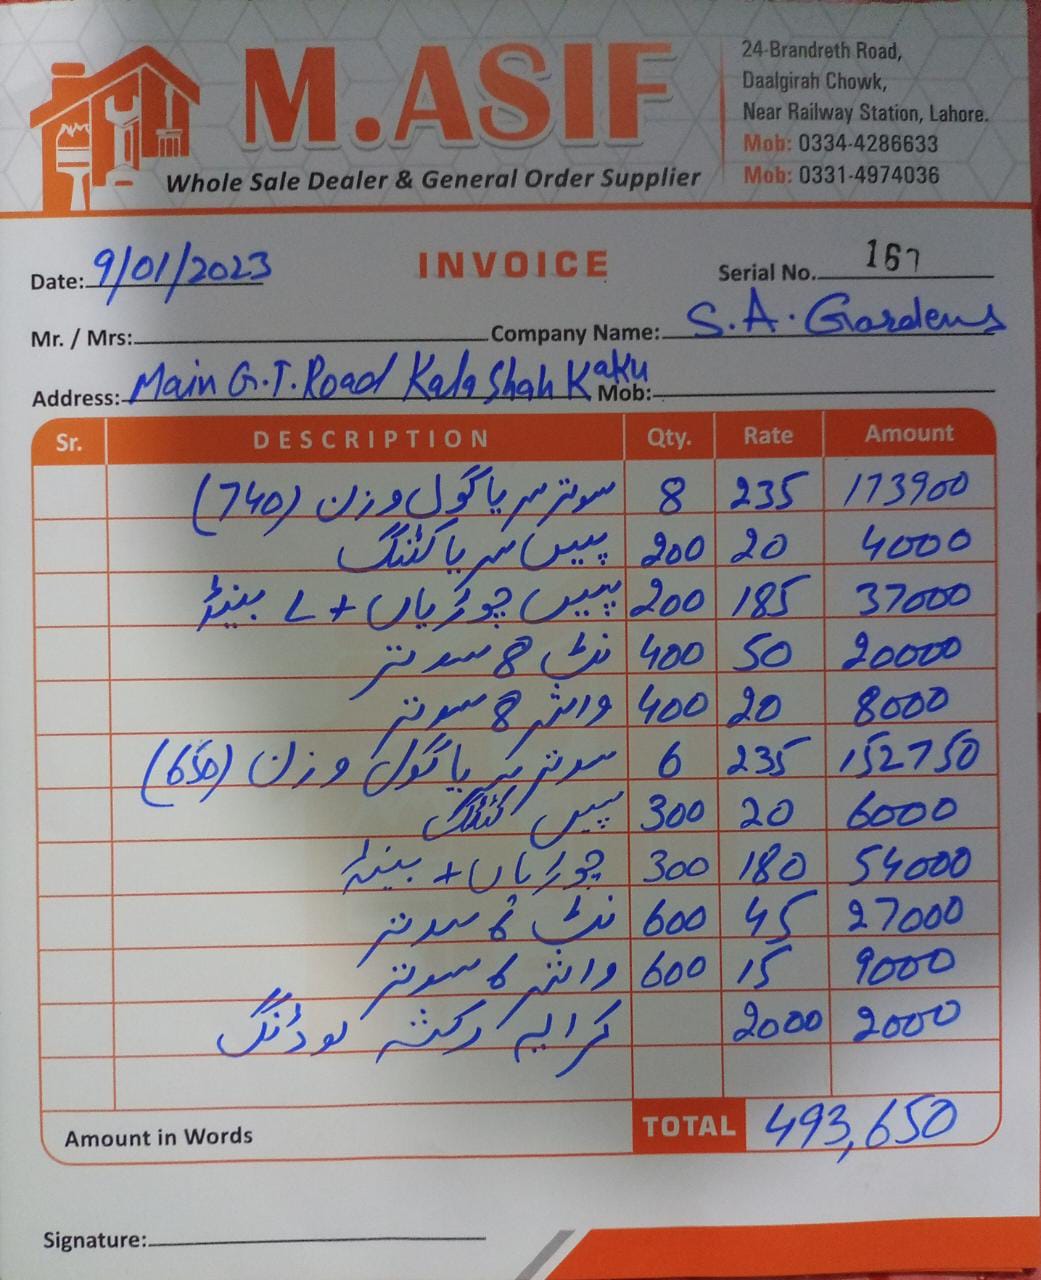 M.ASIF
Whole Sale Dealer & General Order Supplier
24-Brandreth Road,
Daalgirah Chowk,
Near Railway Station, Lahore.
Mob: 0334-4286633
Mob: 0331-4974036
INVOICE
Date: 9/01/2023
Serial No. 167
Mr. / Mrs:
Company Name: S.A. Gardens
Address: Main G.T. Road Kala Shah Kaku Mob:
Sr. DESCRIPTION Qty. Rate Amount
سوتر سریا گول وزن (740) 8 235 173900
پیس سریا کٹنگ 200 20 4000
پیس چوڑیاں + L بینڈ 200 185 37000
نٹ 8 سوتر 400 50 20000
واشر 8 سوتر 400 20 8000
سوتر سریا گول وزن (650) 6 235 152750
پیس کٹنگ 300 20 6000
چوڑیاں + بینڈ 300 180 54000
نٹ 6 سوتر 600 45 27000
واشر 6 سوتر 600 15 9000
کرایہ رکشہ لوڈنگ 2000 2000
Amount in Words TOTAL 493,650
Signature: